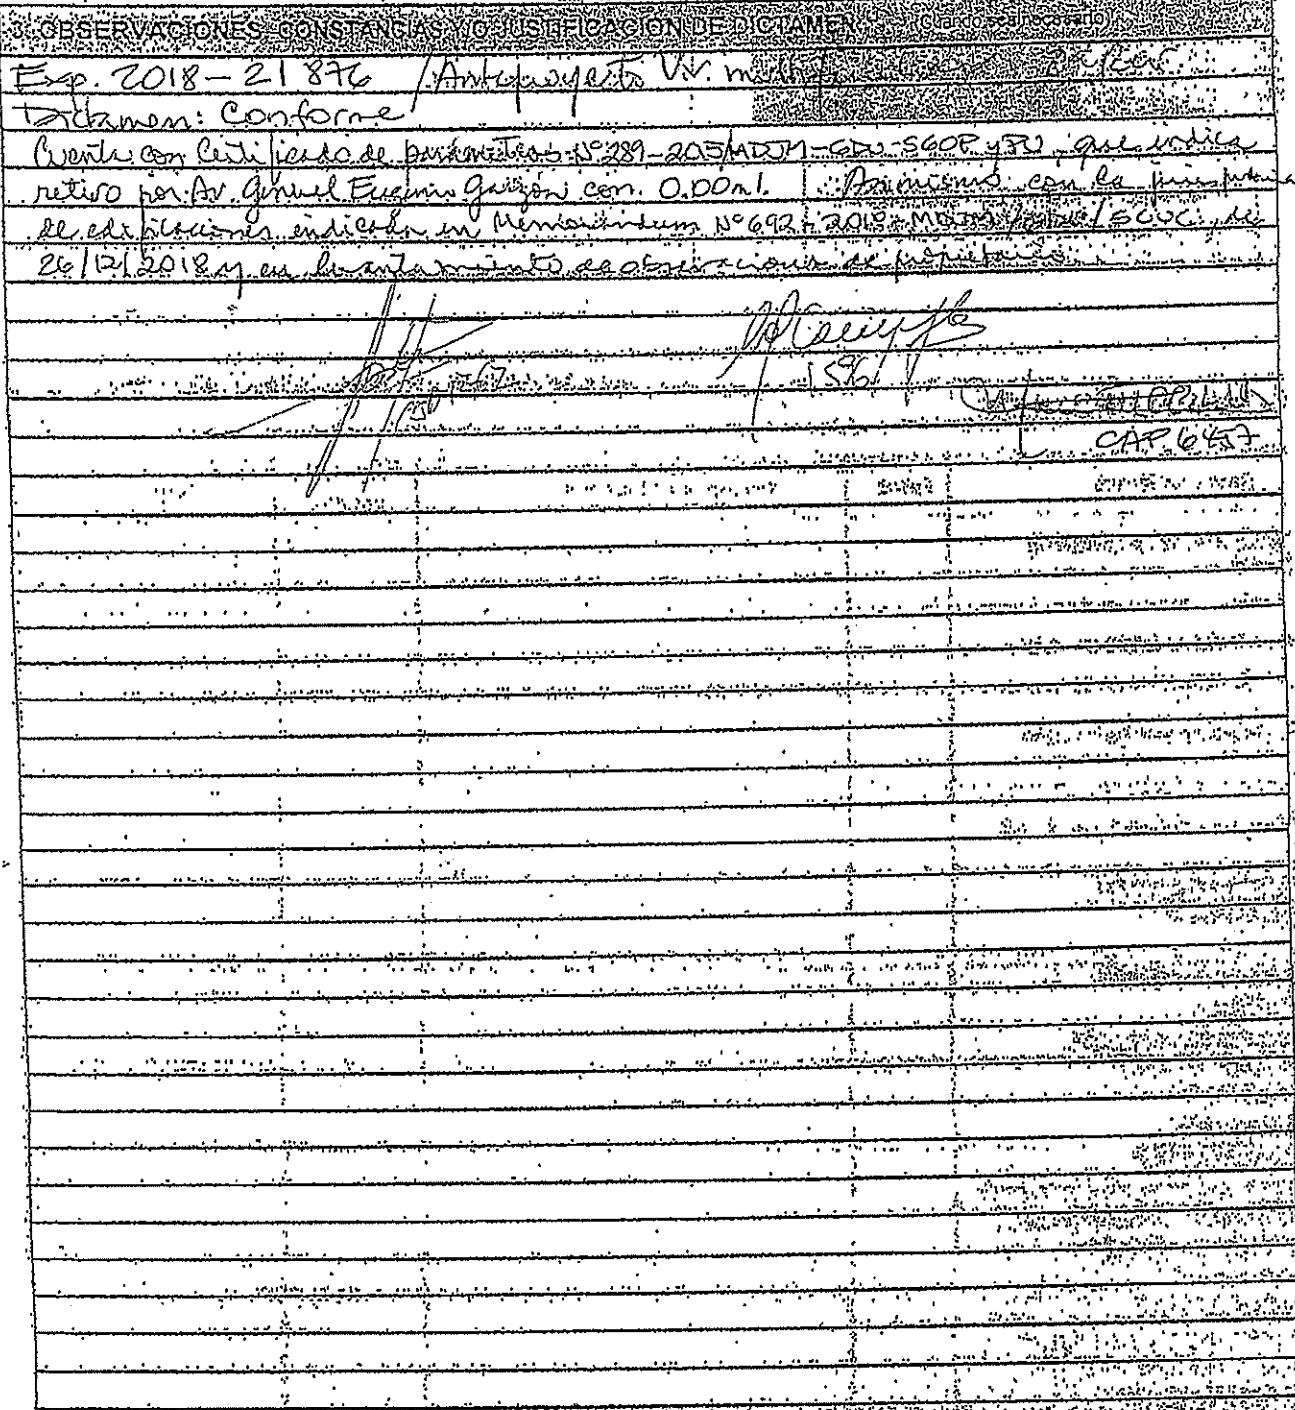 3. OBSERVACIONES, CONSTANCIAS Y/O JUSTIFICACIÓN DE DICTAMEN (Cuando sea necesario)
Exp. 2018-21876 / Anteproyecto Viv.
Dictamen: Conforme
Cuenta con Certificado de parámetros Nº 289-2015/MDJM-GDU-SGOP y , que indica
retiro por Av. General Eugenio Garzón con. 0.00ml. Asimismo con la
de edificaciones indicada en Memorándum Nº 692-2018-MDJM/ , de
26/12/2018 y en levantamiento de observaciones de propietario.
CAP 6457